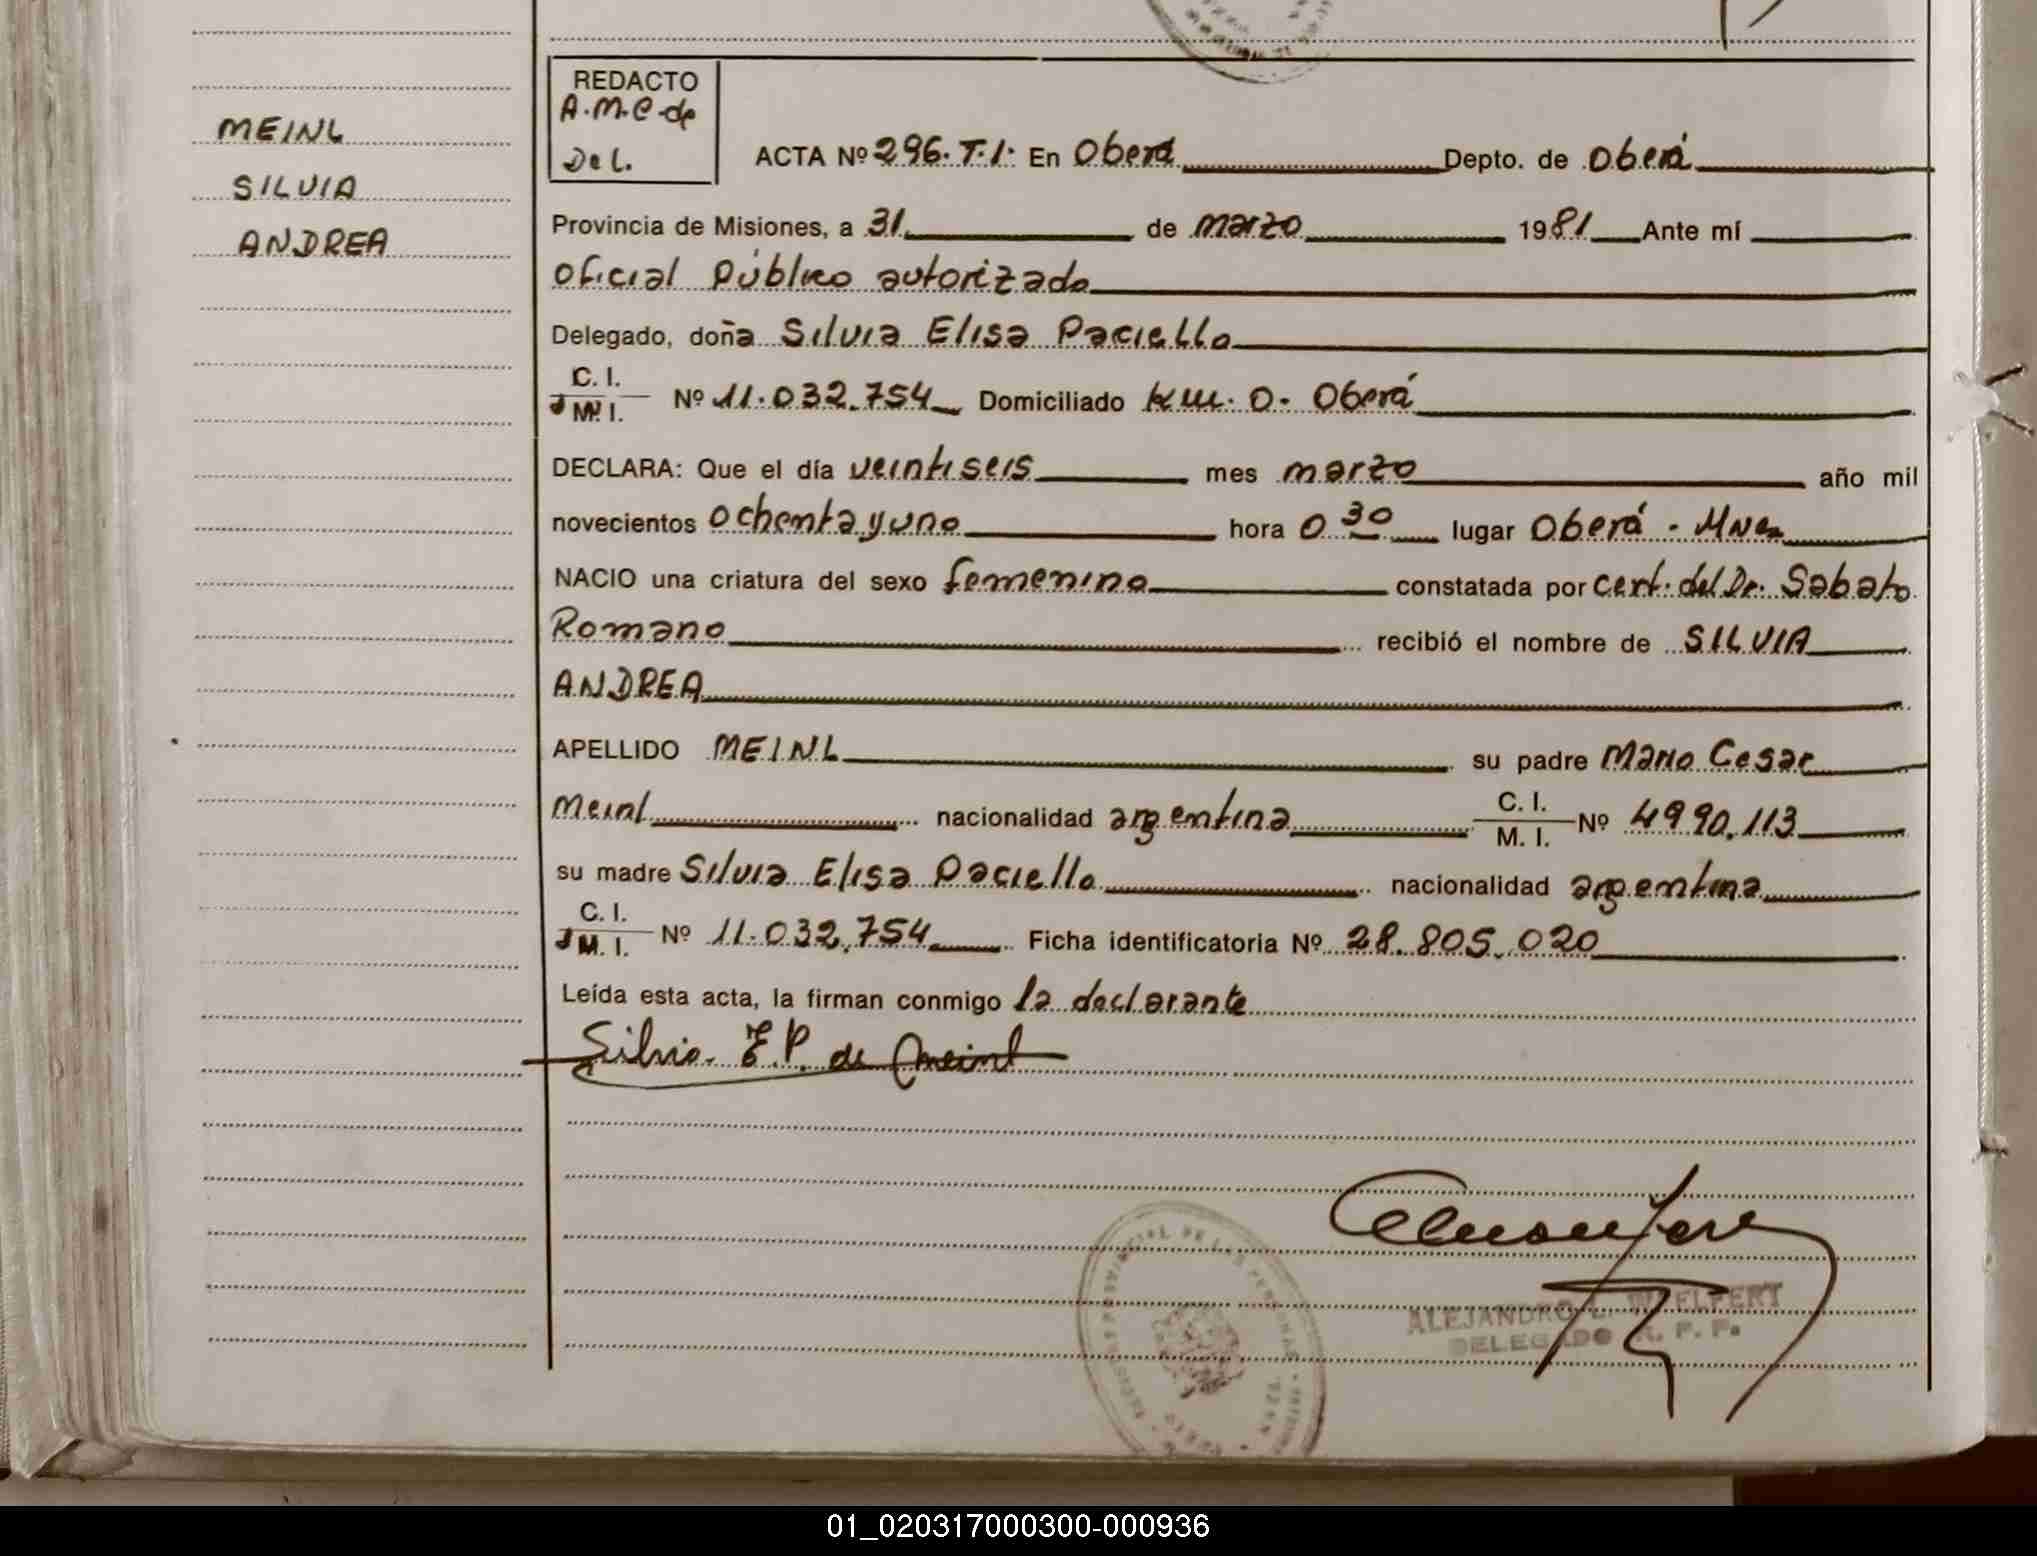 MEINL
SILVIA
ANDREA
REDACTO
A.M.C. de
Del.
ACTA Nº 296.T.1. En Oberá Depto. de Oberá
Provincia de Misiones, a 31 de marzo 1981 Ante mí
Oficial Público autorizado
Delegado, doña Silvia Elisa Paciello
C. I.
M. I. Nº 11.032.754 Domiciliado Km. 0. Oberá
DECLARA: Que el día veintiseis mes marzo año mil
novecientos ochenta y uno hora 0 30 lugar Oberá - Mnes
NACIO una criatura del sexo femenino constatada por cert. del Dr. Sabato
Romano recibió el nombre de SILVIA
ANDREA
APELLIDO MEINL su padre Mario Cesar
Meinl nacionalidad argentina C. I. M. I. Nº 4990.113
su madre Silvia Elisa Paciello nacionalidad argentina
C. I.
M. I. Nº 11.032.754 Ficha identificatoria Nº 28.805.020
Leída esta acta, la firman conmigo la declarante
Silvia E P. de Meinl
ALEJANDRO
DELEGADO R. P. P.
01_020317000300-000936